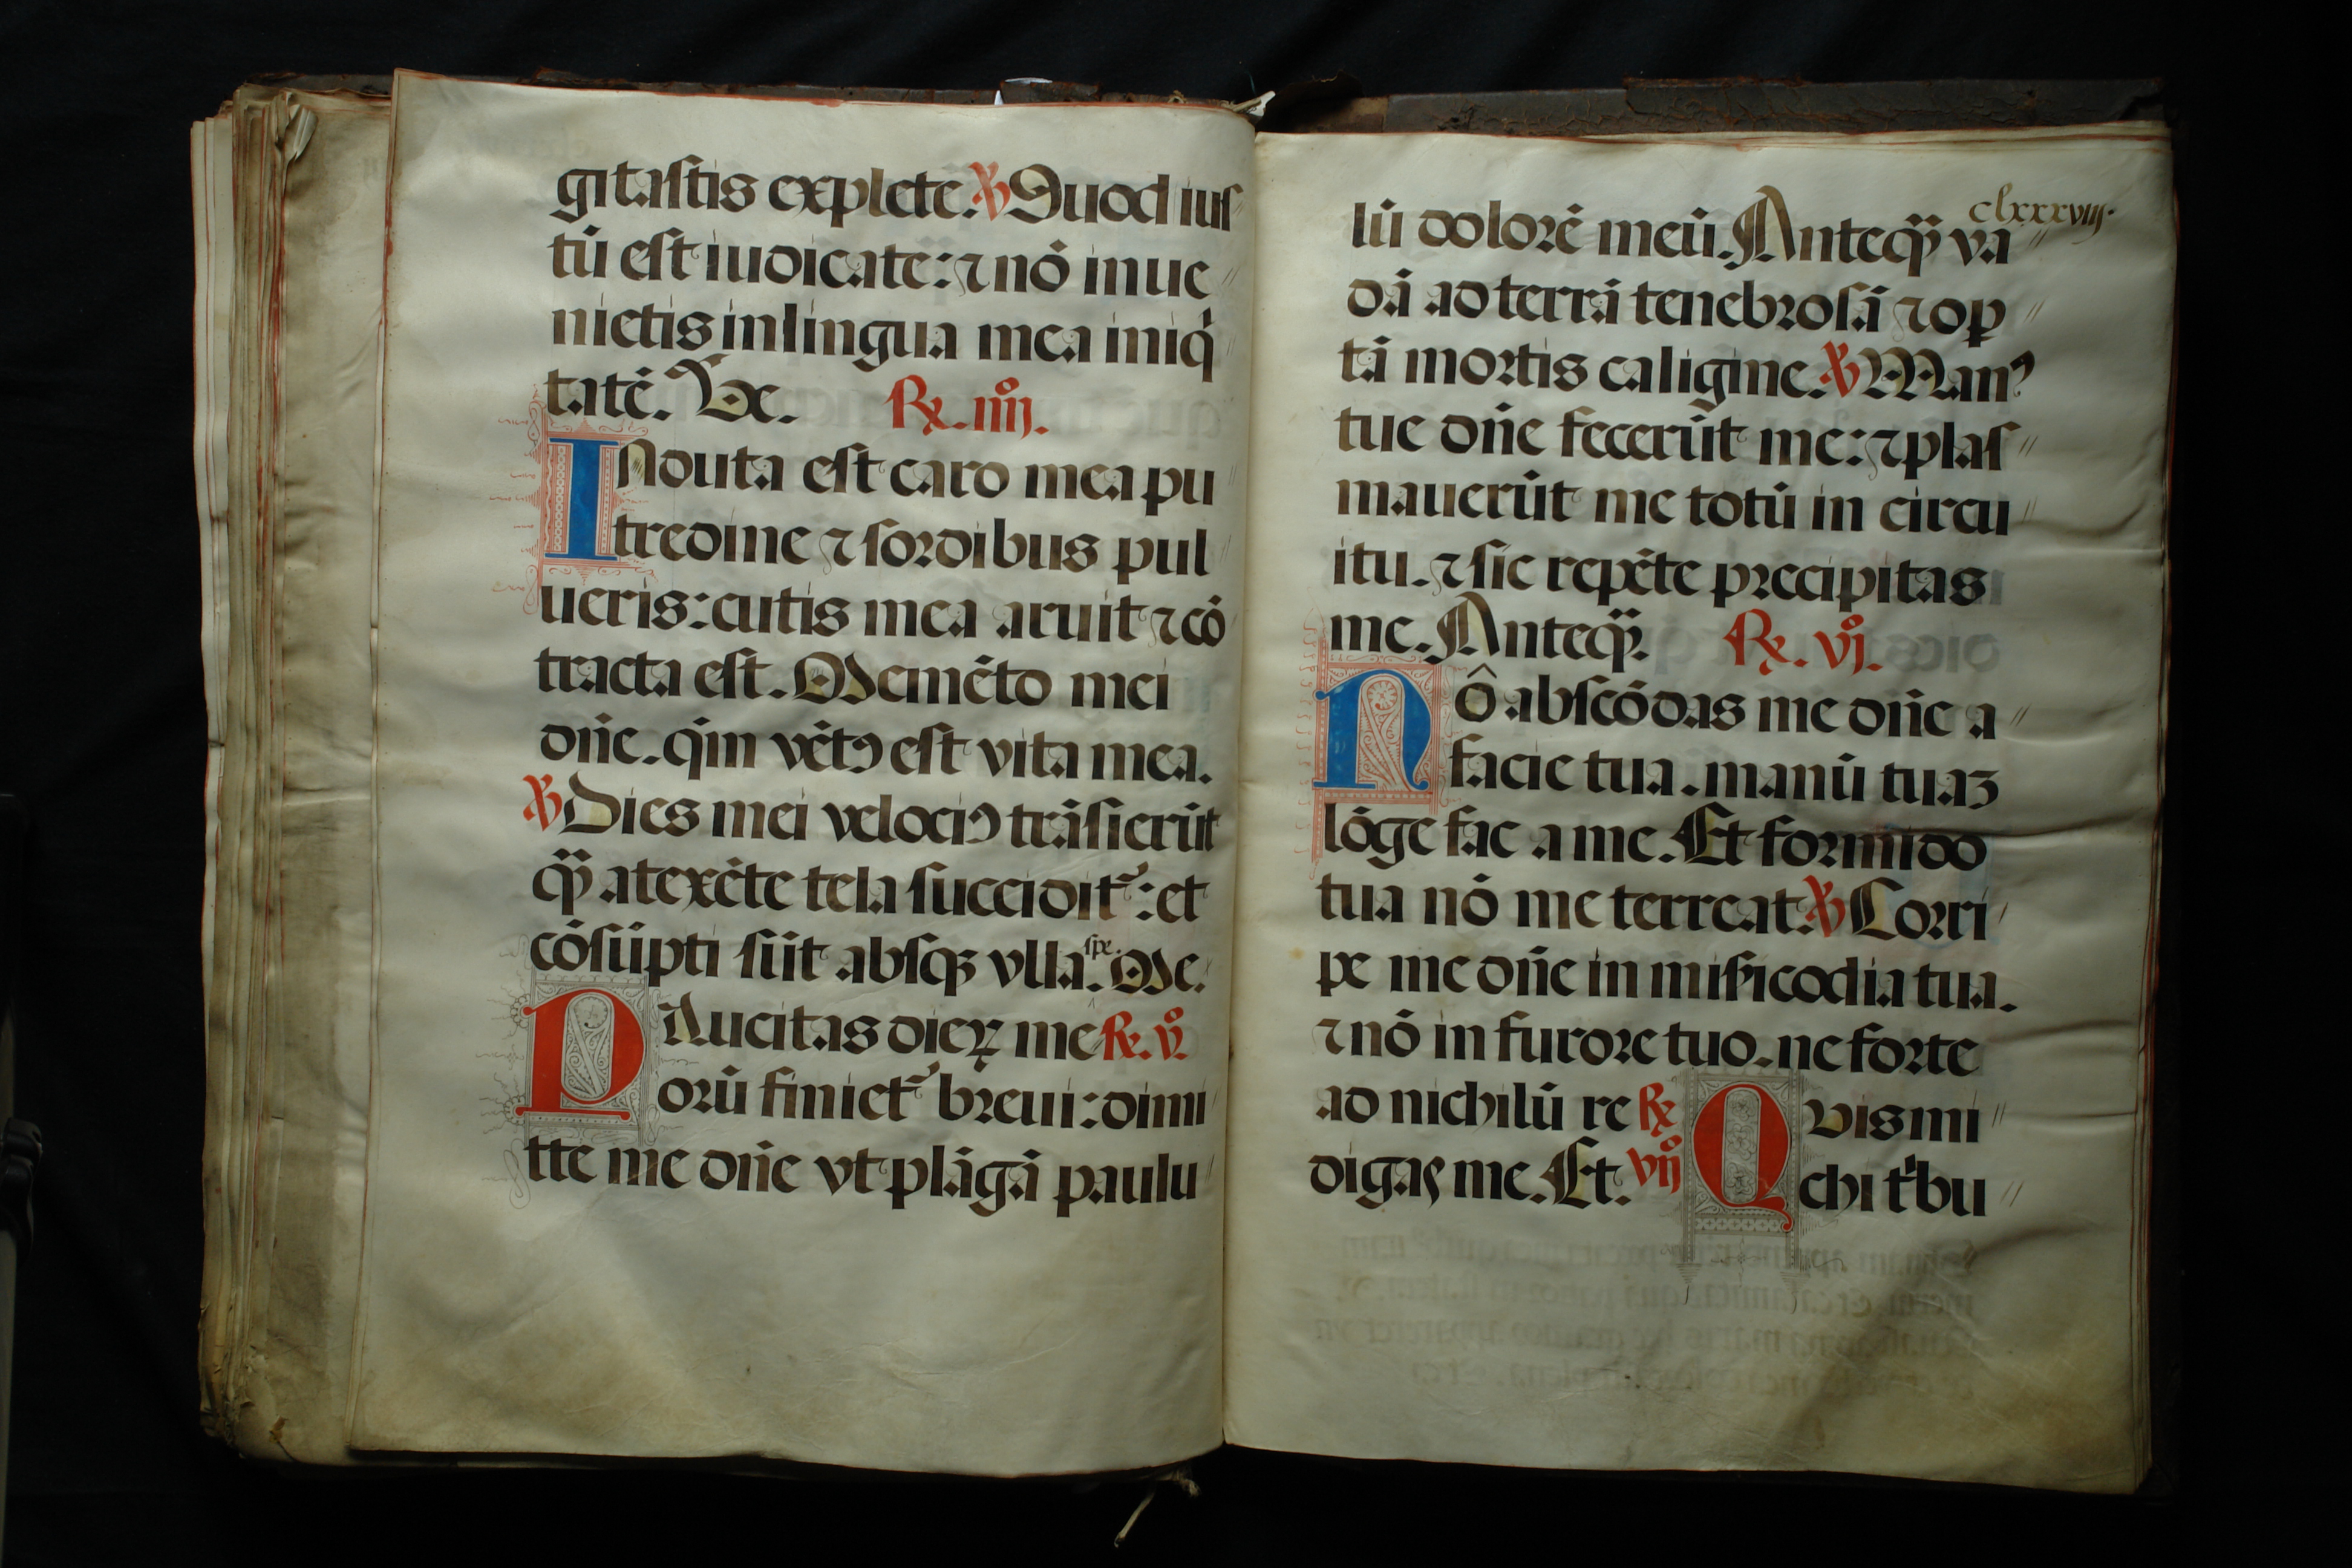 gitastis explete. ℣ Quod ius
tū est iudicate: ⁊ nō inue
nietis in lingua mea iniq̇
tatē. Ve. ℟. iiijº.
INduta est caro mea pu
tredine ⁊ sordibus pul
ueris: cutis mea aruit ⁊ cō
tracta est. Memēto mei
dn̄e. qm̄ vētꝰ est vita mea.
℣ Dies mei velociꝰ trāsierūt
qᷓꝫ a texēte tela succidit᷑: et
cōsūpti sūt absqꝫ vlla spe. Me.
PAucitas dieꝝ me ℟. vº.
orū finiet᷑ breui: dimi
tte me dn̄e vt plāgā paulu
clxxxviij.
lū dolorē meū. Anteqᷓꝫ va
dā ad terrā tenebrosā ⁊ op
tā mortis caligine. ℣ Manꝰ
tue dn̄e fecerūt me: ⁊ plas
mauerūt me totū in circu
itu. ⁊ sic repēte precipitas
me. Anteqᷓꝫ. ℟. vjº.
NŌ abscōdas me dn̄e a
facie tua. manū tuaꝫ
lōge fac a me. Et formido
tua nō me terreat. ℣ Corri
pe me dn̄e in mīsicodia tua.
⁊ nō in furore tuo. ne forte
ad nichilū re ℟ QVis mi
digas me. Et. vijº chi t̄bu